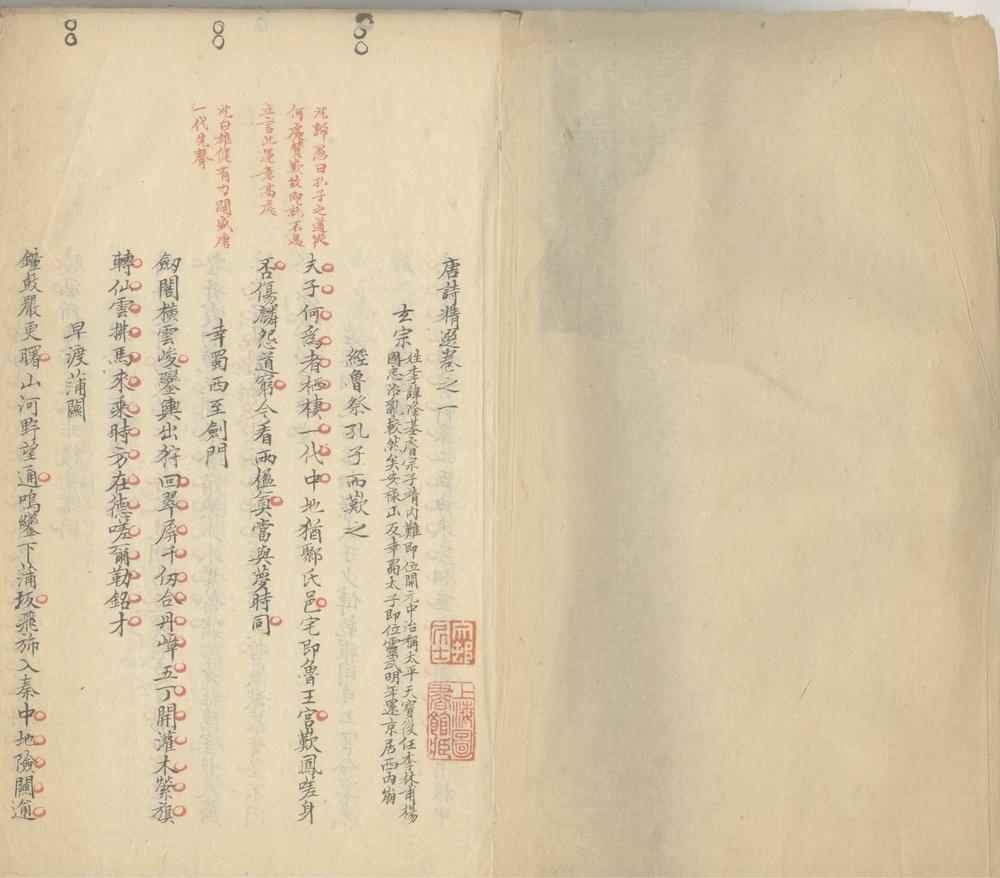 唐詩精選卷之一
玄宗
姓李諱隆基睿宗子靖內難即位開元中治稱太平天寶後任李林甫楊
國忠治亂較然矣安祿山反幸蜀太子即位靈武明年還京居西內崩
經魯祭孔子而歎之
夫子何爲者栖棲一代中地猶鄹氏邑宅即魯王宮歎鳳嗟身
否傷麟怨道窮今看兩楹奠當與夢時同
幸蜀西至劍門
劒閣橫雲峻鑾輿出狩回翠屏千仞合丹嶂五丁開灌木縈旗
轉仙雲拂馬來乘時方在德嗟爾勒銘才
早渡蒲關
鐘鼓嚴更曙山河野望通鳴鑾下蒲坂飛斾入秦中地險關逾
沈歸愚曰孔子之道從
何處贊歎故即就不遇
立言此運意高處
沈曰雄健有力開盛唐
一代先聲
上海圖
書館藏